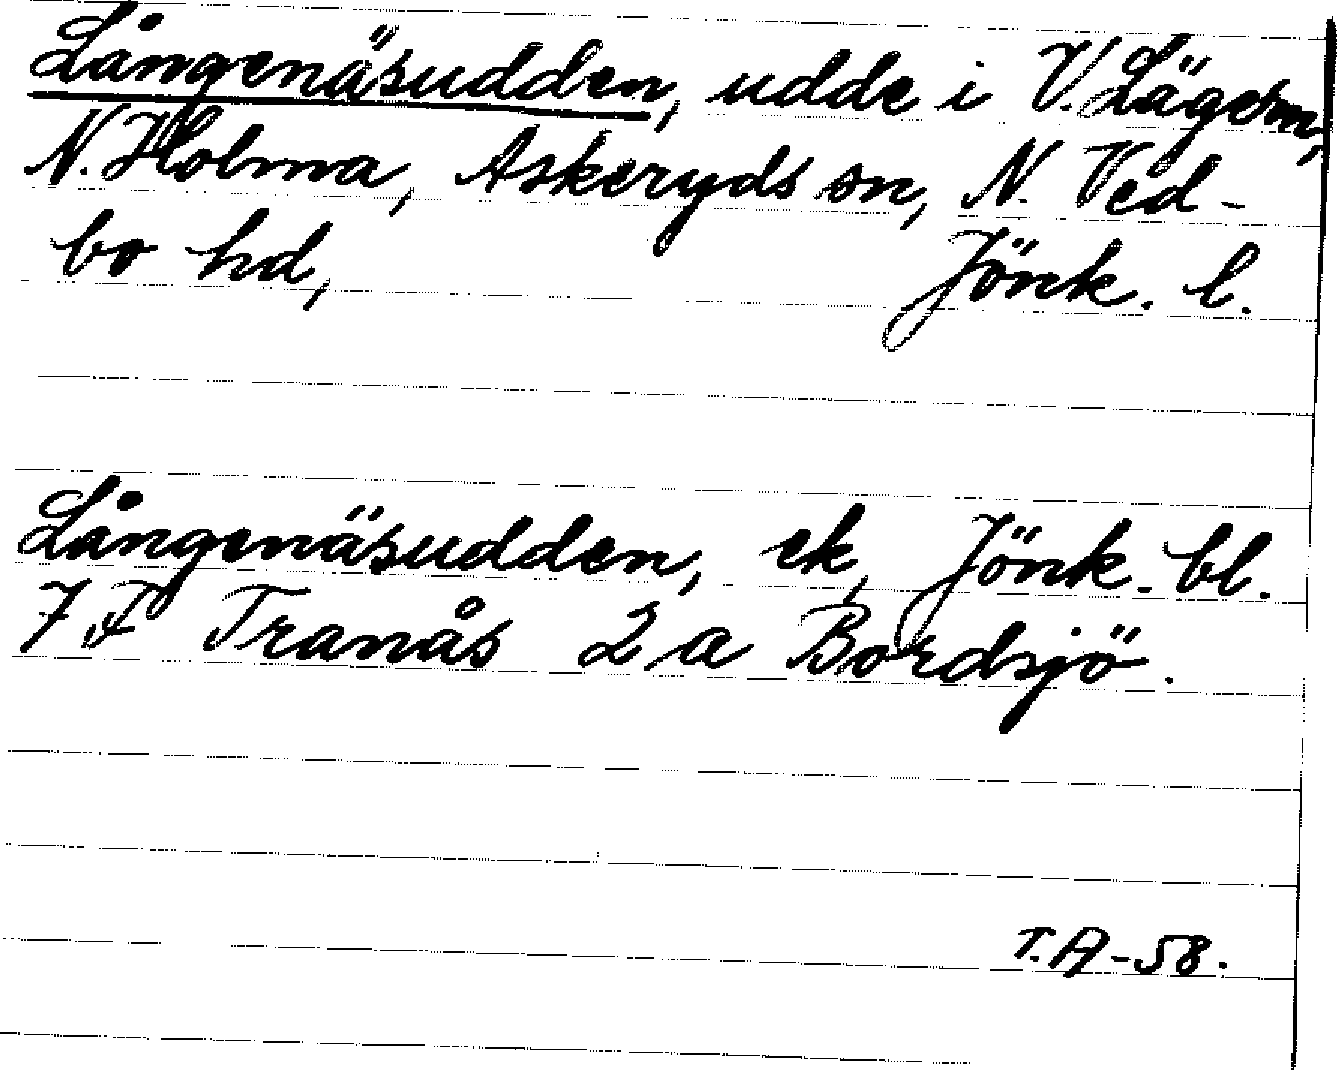 Långenäsudden, udde i V. Lägern,
N. Holma, Askeryds sn, N. Ved-
bo hd, Jönk. l.
Långenäsudden, ek, Jönk. bl.
7 F Tranås 2 a Bordsjö.
T.A-58.